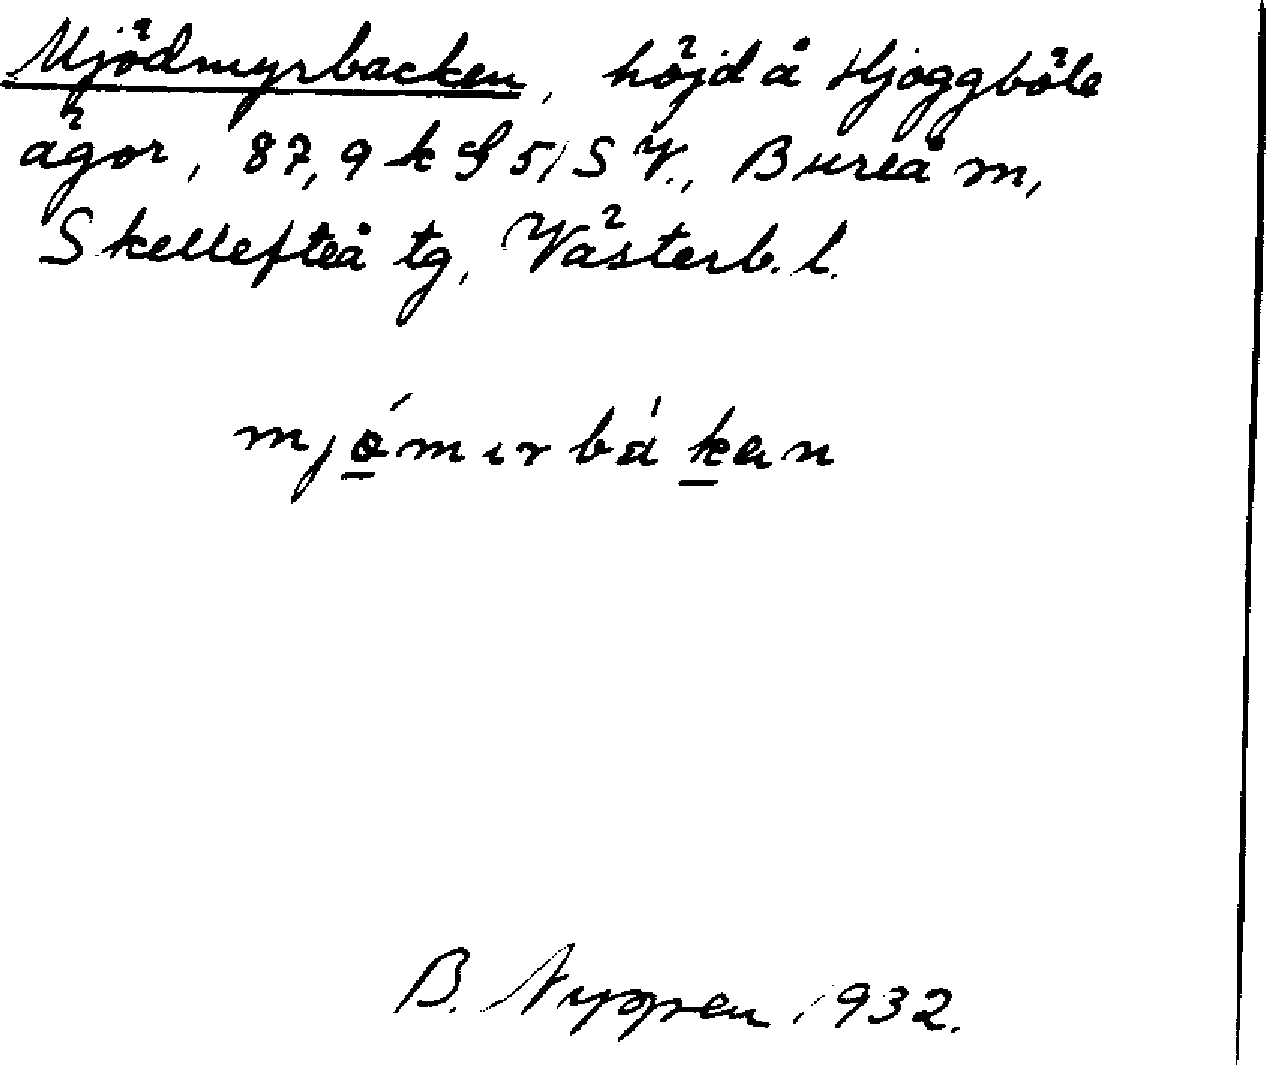 Mjödmyrbacken, höjd å Hjoggböle
ägor, 87,9 k S 51 SV., Bureå sn,
Skellefteå tg, Västerb. l.
mjǿmırbákan
B. Nyppen 1932.